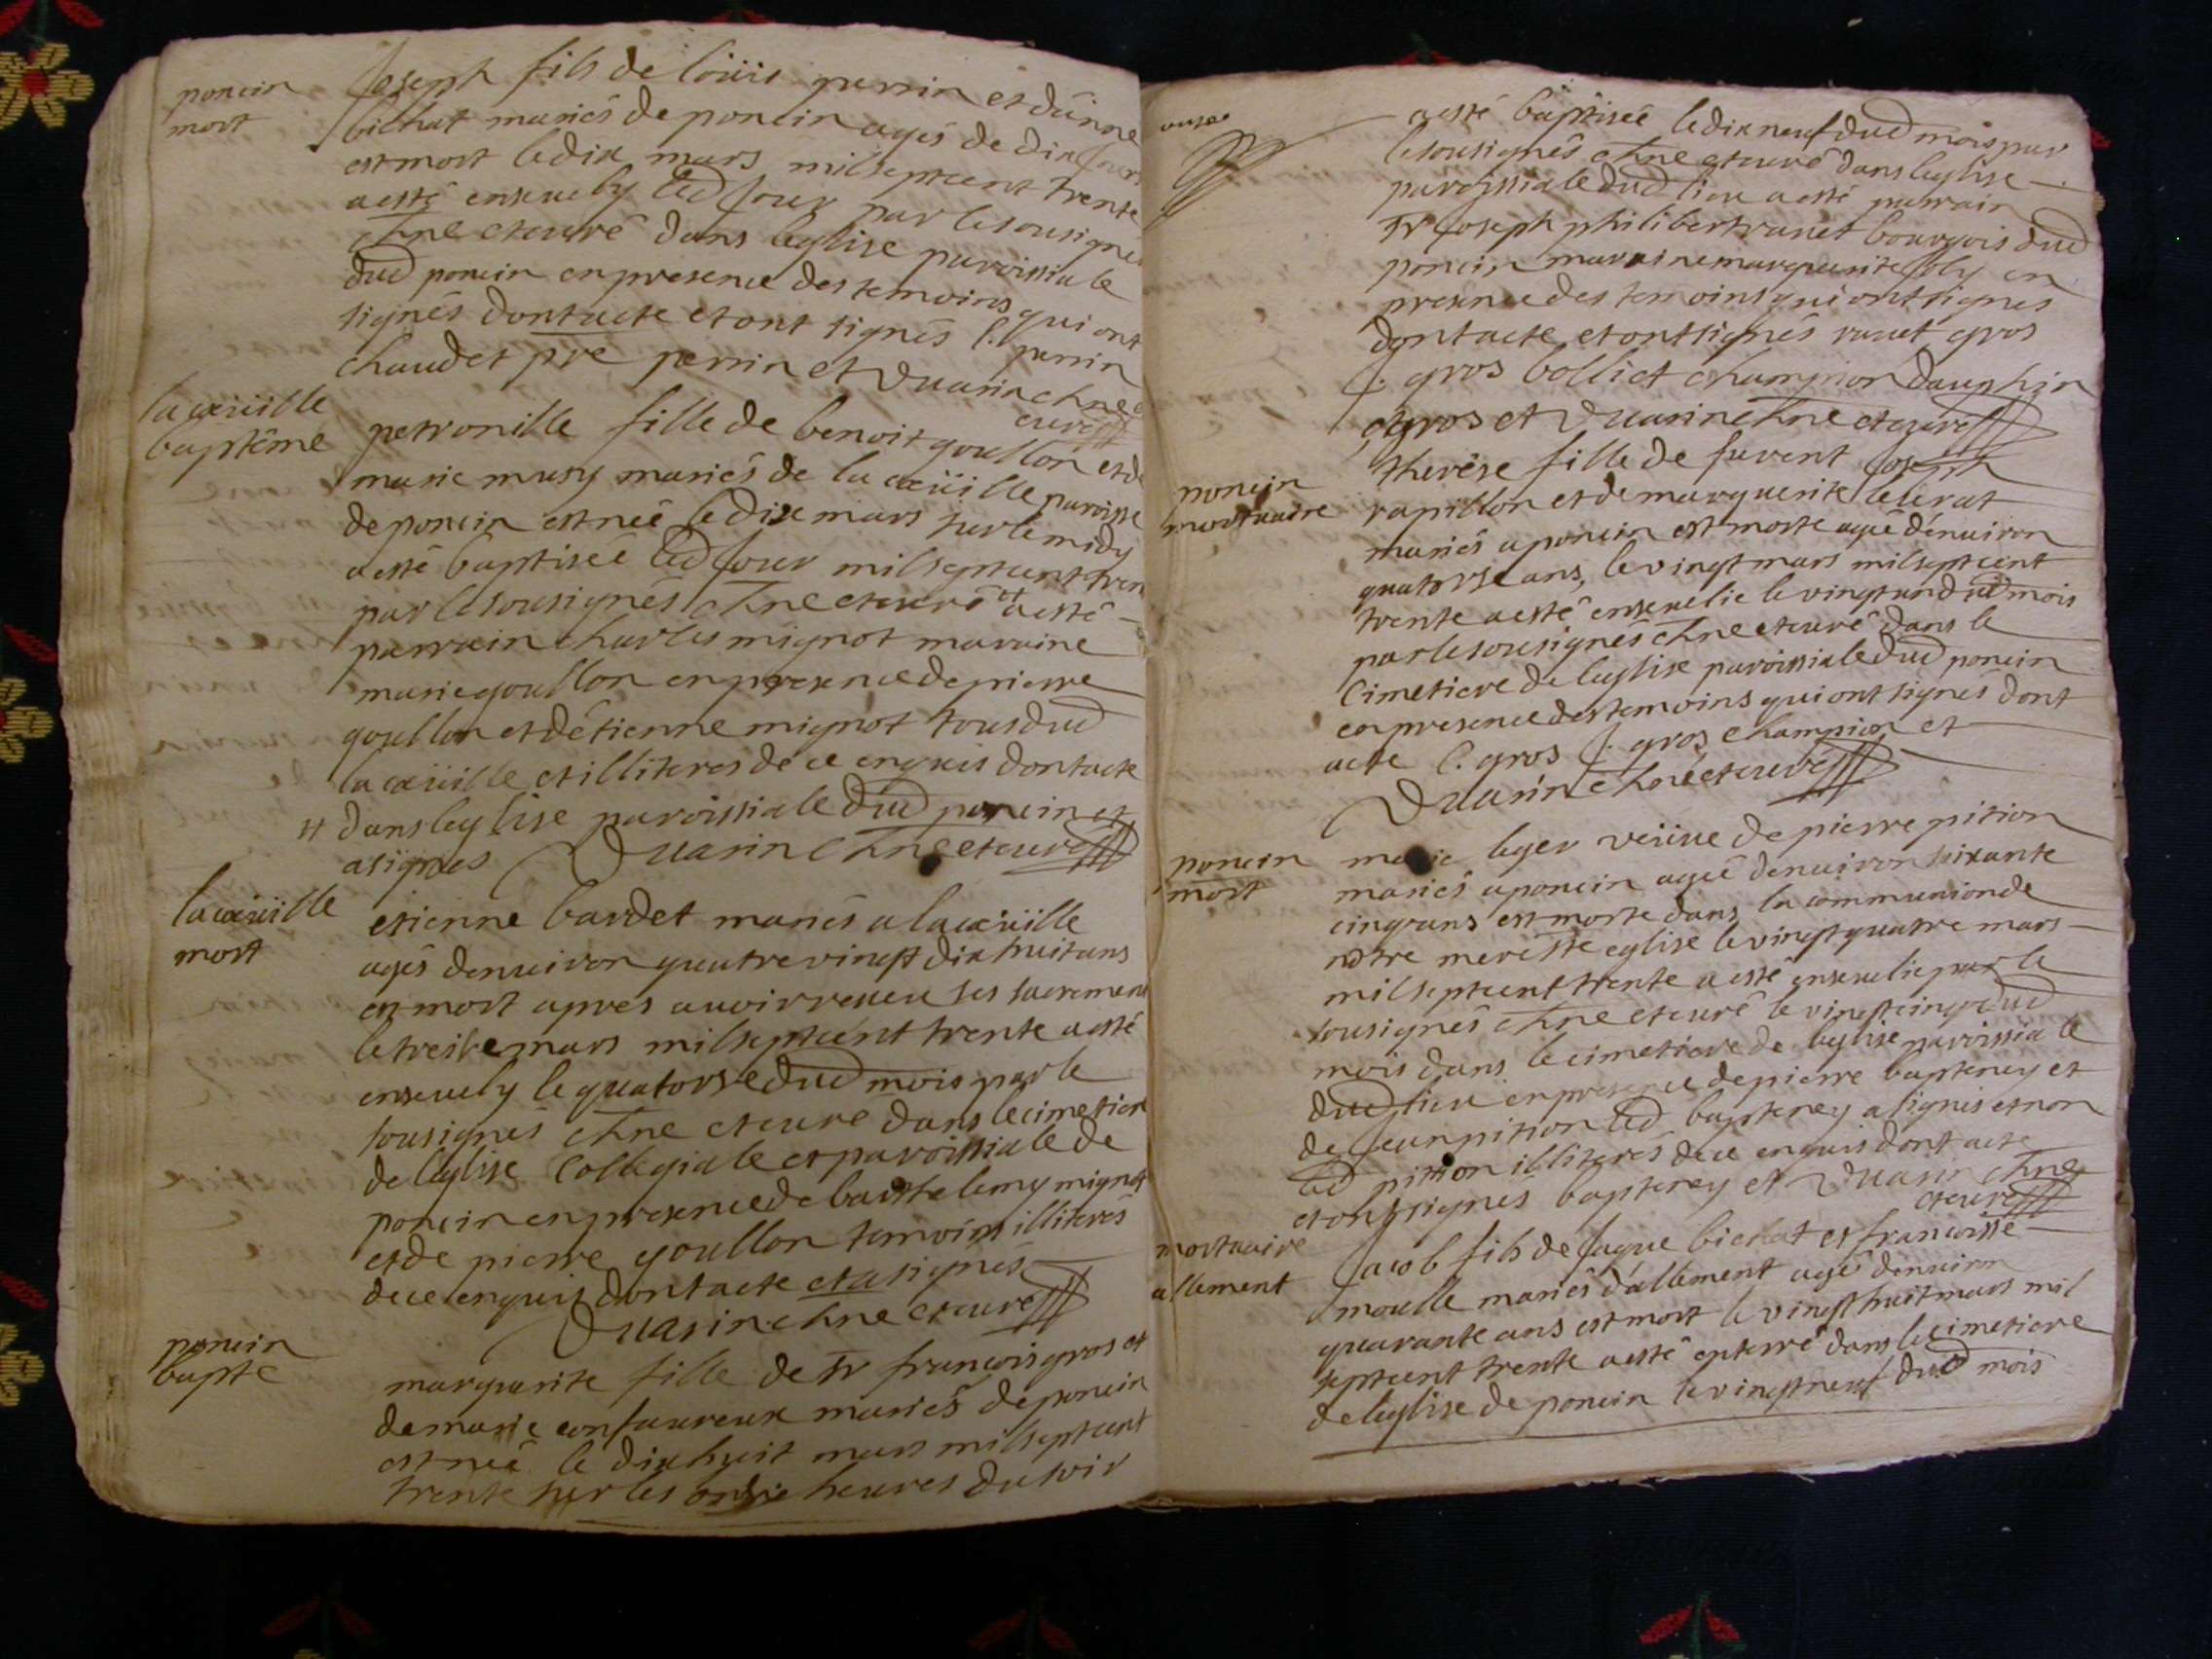 poncin
mort
Joseph fils de loüis perrin et dânne
bichat mariés de poncin agés de dix jours
est mort le dix mars mil sept cent trente
a esté ensevely led jour par le sousignés
chne et curé dans leglise paroissiale
dud poncin en presence des temoins qui ont
signés dont acte et ont signés l. perrin
chaudet pre perrin et Duarin chne et
curé
la cuëille
baptême
petronille fille de benoit goullon et de
marie musy mariés de la cuëille paroisse
de poncin est née le dix mars sur le midy
a esté baptiseé led jour mil sept cent tren
par le sousignés chne et curé et a esté
parrain charles mignot maraine
marie goullon en presence de pierre
goullon et dêtienne mignot tous dud
la cuëille et illiterés de ce enquis dont acte
# dans leglise paroissiale dud poncin et
a signés Duarin chne et curé
la cuëille
mort
etienne bardet mariés a la cuëille
agés denviron quatre vingt dix huit ans
est mort apres auoir receu ses sacremens
le treize mars mil sept cent trente a esté
ensevely le quatorse dud mois par le
sousignés chne et curé dans le cimetiere
de leglise Collegiale et paroissiale de
poncin en presence de barthelemy mignot
et de pierre goullon temoins illiterés
de ce enquis dont acte et a signés
Duarin chne et curé
poncin
bapte
marguerite fille de sr francois gros et
de marie confaureux mariés de poncin
est née le dix huit mars mil sept cent
trente sur les onse heures du soir
a esté baptiseé le dix neuf dud mois par
le sousignés chne et curé dans leglise
paroissiale dud lieu a esté parrain
sr joseph philibert rauet bourgois dud
poncin maraine marguerite joly en
presence des temoins qui ont signés
dont acte et ont signés rauet gros
J. gros bolliet champion dauphin
gros et Duarin chne et curé
poncin
mortuaire
therêse fille de furent joseph
rapillon et de marguerite
mariés a poncin est morte ageé dênuiron
quatorse ans, le vingt mars mil sept cent
trente a esté ensevelie le vingt un dud mois
par le sousignés chne et curé dans le
Cimetiere de leglise paroissiale dud poncin
en presence des temoins qui ont signés dont
acte C. gros J. gros champion et
Duarin chne et curé
poncin
mort
marie leger veüue de pierre pition
mariés a poncin ageé denuiron soixante
cinq ans est morte dans la communion de
nôtre mere ste eglise le vingt quatre mars
mil sept cent trente a esté ensevelie par le
sousignés chne et curé le vingt cinq dud
mois dans le cimetiere de leglise paroissiale
dud lieu en presence de pierre bapterey et
de jean pition led bapterey a signés et non
led pition illiterés de ce enquis dont acte
et ont signés bapterey et Duarin chne
et curé
mortuaire
allement
Jacob fils de jaque bichat et francoise
moulle mariés d'allement agé denuiron
quarante ans est mort le vingt huit mars mil
sept cent trente a esté enterré dans le cimetiere
de leglise de poncin le vingt neuf dud mois